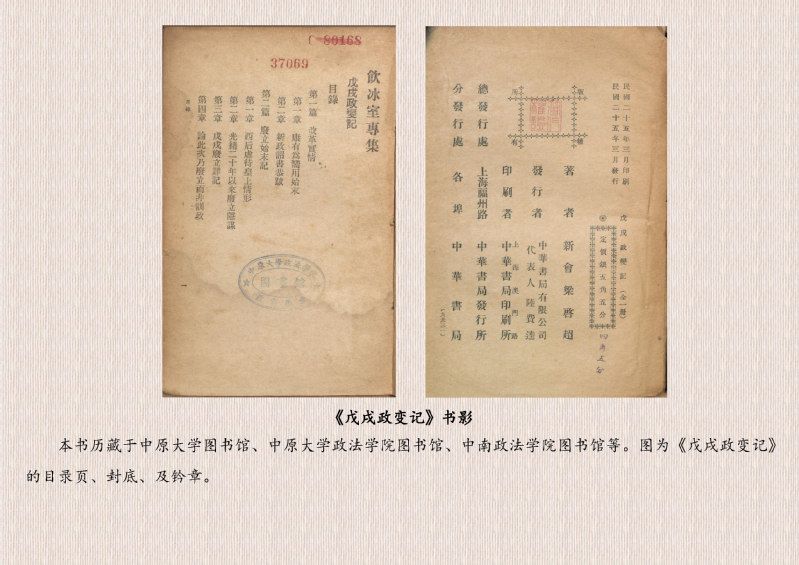 80168
37069
飲冰室專集
戊戌政變記
目錄
第一篇 改革實情
第一章 康有爲嚮用始末
第二章 新政詔書恭跋
第二篇 廢立始末記
第一章 西后虐待皇上情形
第二章 光緒二十年以來廢立隱謀
第三章 戊戌廢立詳記
第四章 論此次乃廢立而非訓政
目錄
中原大學政法學院
圖書館
民國二十五年三月印刷
民國二十五年三月發行
戊戌政變記(全一冊)
◎定價銀五角五分
版權所有
著者 新會梁啓超
發行者 中華書局有限公司
代表人 陸費逵
印刷者 上海澳門路
中華書局印刷所
總發行處 上海福州路 中華書局發行所
分發行處 各埠 中華書局
《戊戌政变记》书影
本书历藏于中原大学图书馆、中原大学政法学院图书馆、中南政法学院图书馆等。图为《戊戌政变记》
的目录页、封底、及钤章。